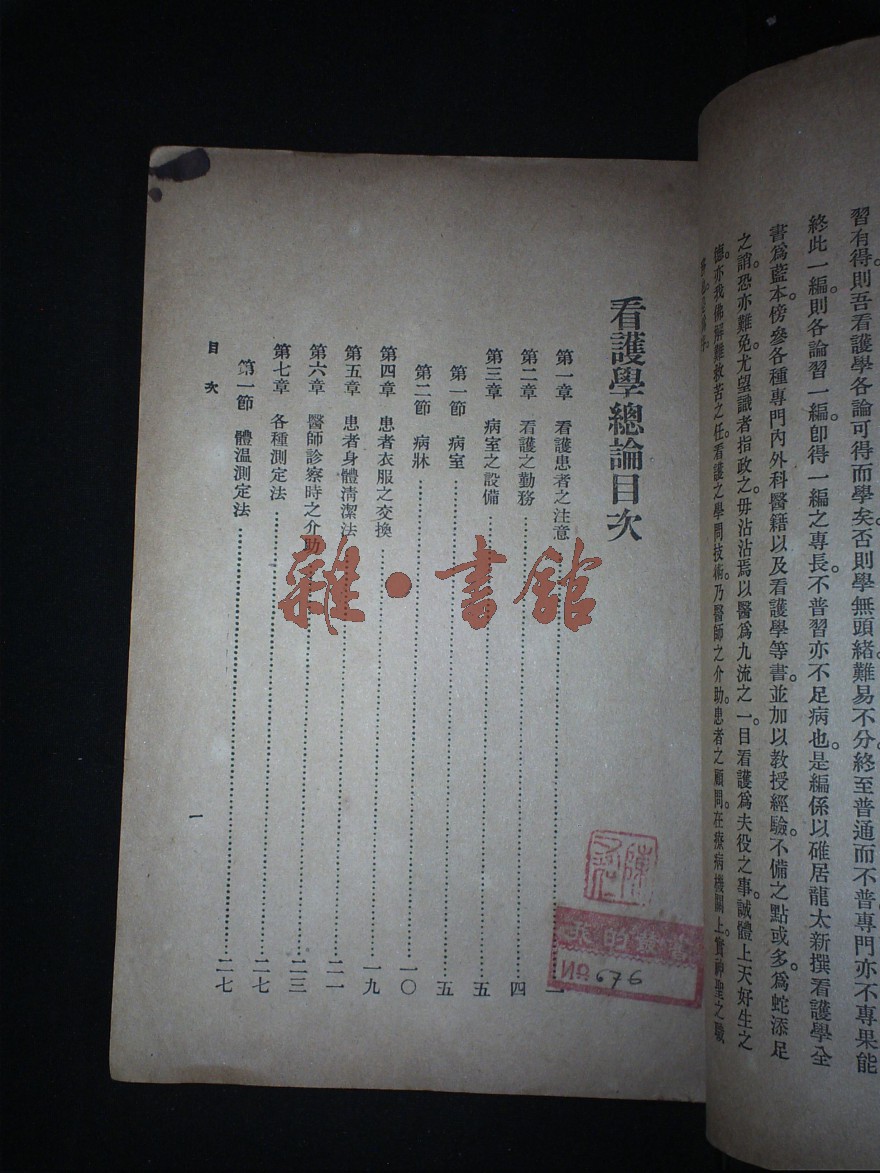 習有得。則吾看護學各論可得而學矣。否則學無頭緒。難易不分。終至普通而不普。專門亦不專。果能
終此一編。則各論習一編。卽得一編之專長。不普習亦不足病也。是編係以碓居龍太新撰看護學全
書爲藍本。傍參各種專門內外科醫籍以及看護學等書。並加以教授經驗。不備之點或多。爲蛇添足
之誚。恐亦難免。尤望識者指政之。毋沾沾焉以醫爲九流之一。目看護爲夫役之事。誠體上天好生之
德。亦我佛解難救苦之任。看護之學問技術。乃醫師之介助。患者之顧問。在療病機關上。實神聖之職
看護學總論目次
第一章 看護患者之注意 一
第二章 看護之勤務 四
第三章 病室之設備 五
第一節 病室 五
第二節 病牀 一〇
第四章 患者衣服之交換 一九
第五章 患者身體淸潔法 二一
第六章 醫師診察時之介助 二三
第七章 各種測定法 二七
第一節 體溫測定法 二七
目次
一
雜·書館
我的叢書
№ 676